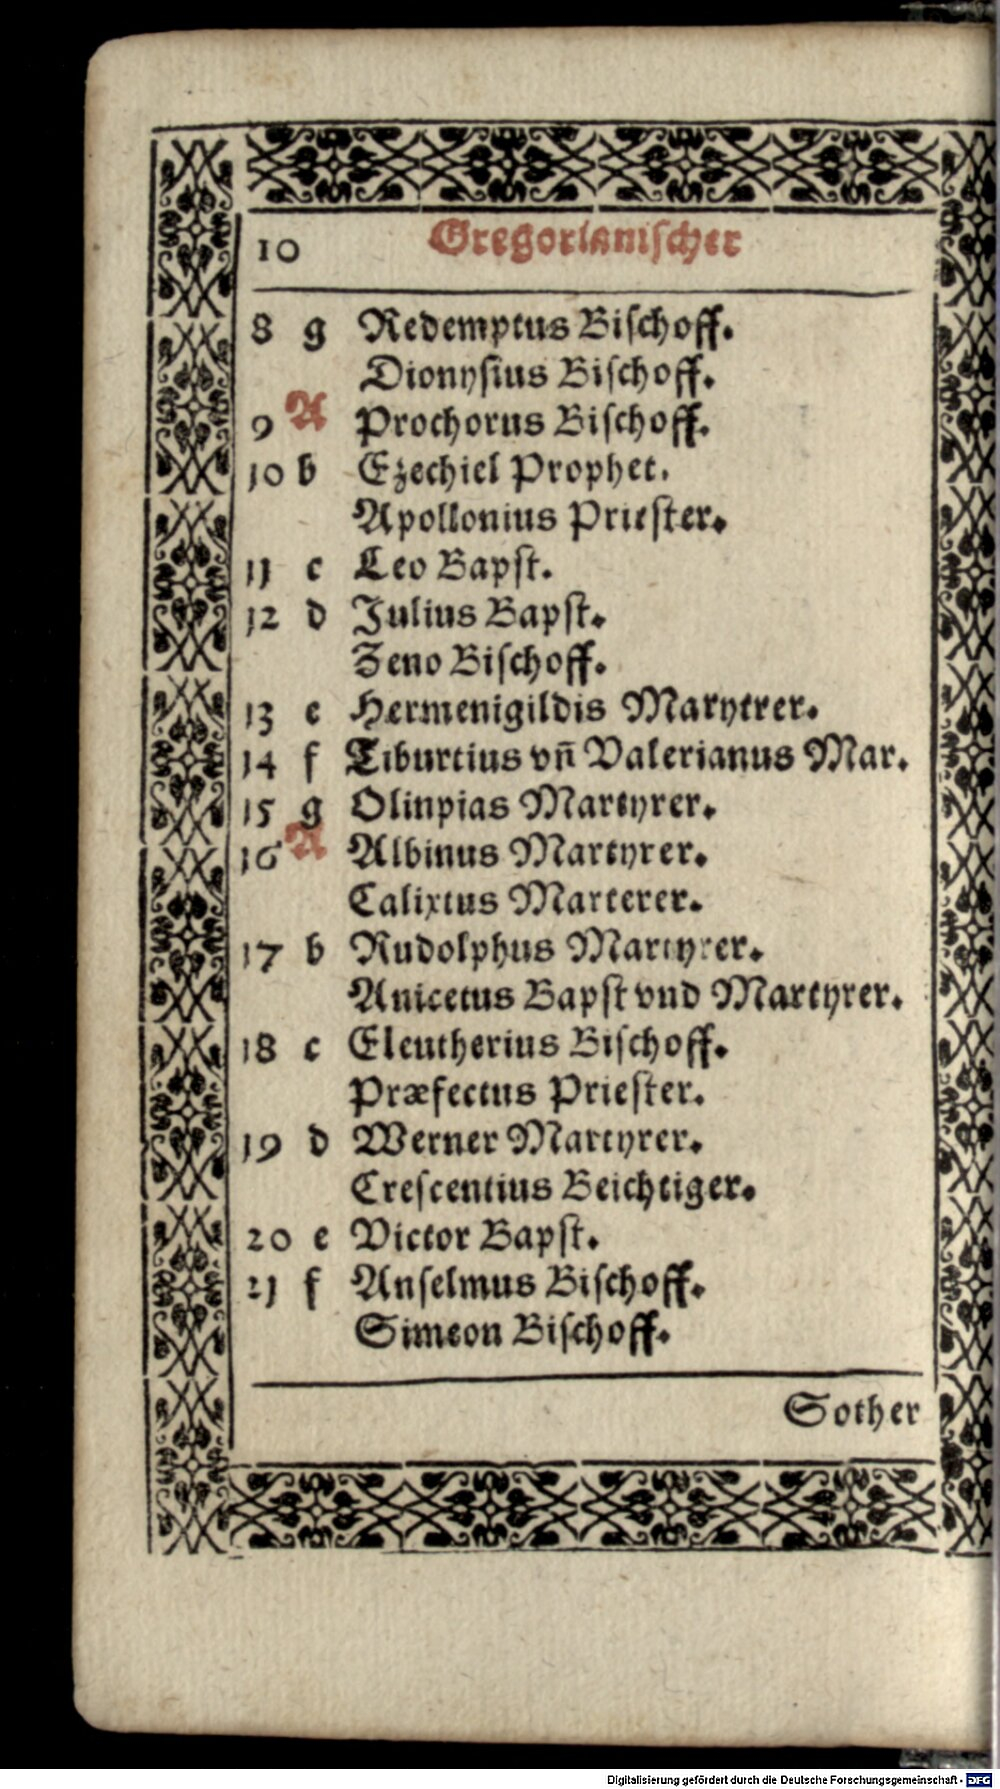 10 Gregorianischer
8 g Redemptus Bischoff.
Dionysius Bischoff.
9 A Prochorus Bischoff.
10 b Ezechiel Prophet.
Apollonius Priester.
11 c Leo Bapst.
12 d Julius Bapst.
Zeno Bischoff.
13 e Hermenigildis Marytrer.
14 f Tiburtius vñ Valerianus Mar.
15 g Olinpias Martyrer.
16 A Albinus Martyrer.
Calixtus Marterer.
17 b Rudolphus Martyrer.
Anicetus Bapst vnd Martyrer.
18 c Eleutherius Bischoff.
Præfectus Priester.
19 d Werner Martyrer.
Crescentius Beichtiger.
20 e Victor Bapst.
21 f Anselmus Bischoff.
Simeon Bischoff.
Sother
Digitalisierung gefördert durch die Deutsche Forschungsgemeinschaft - DFG